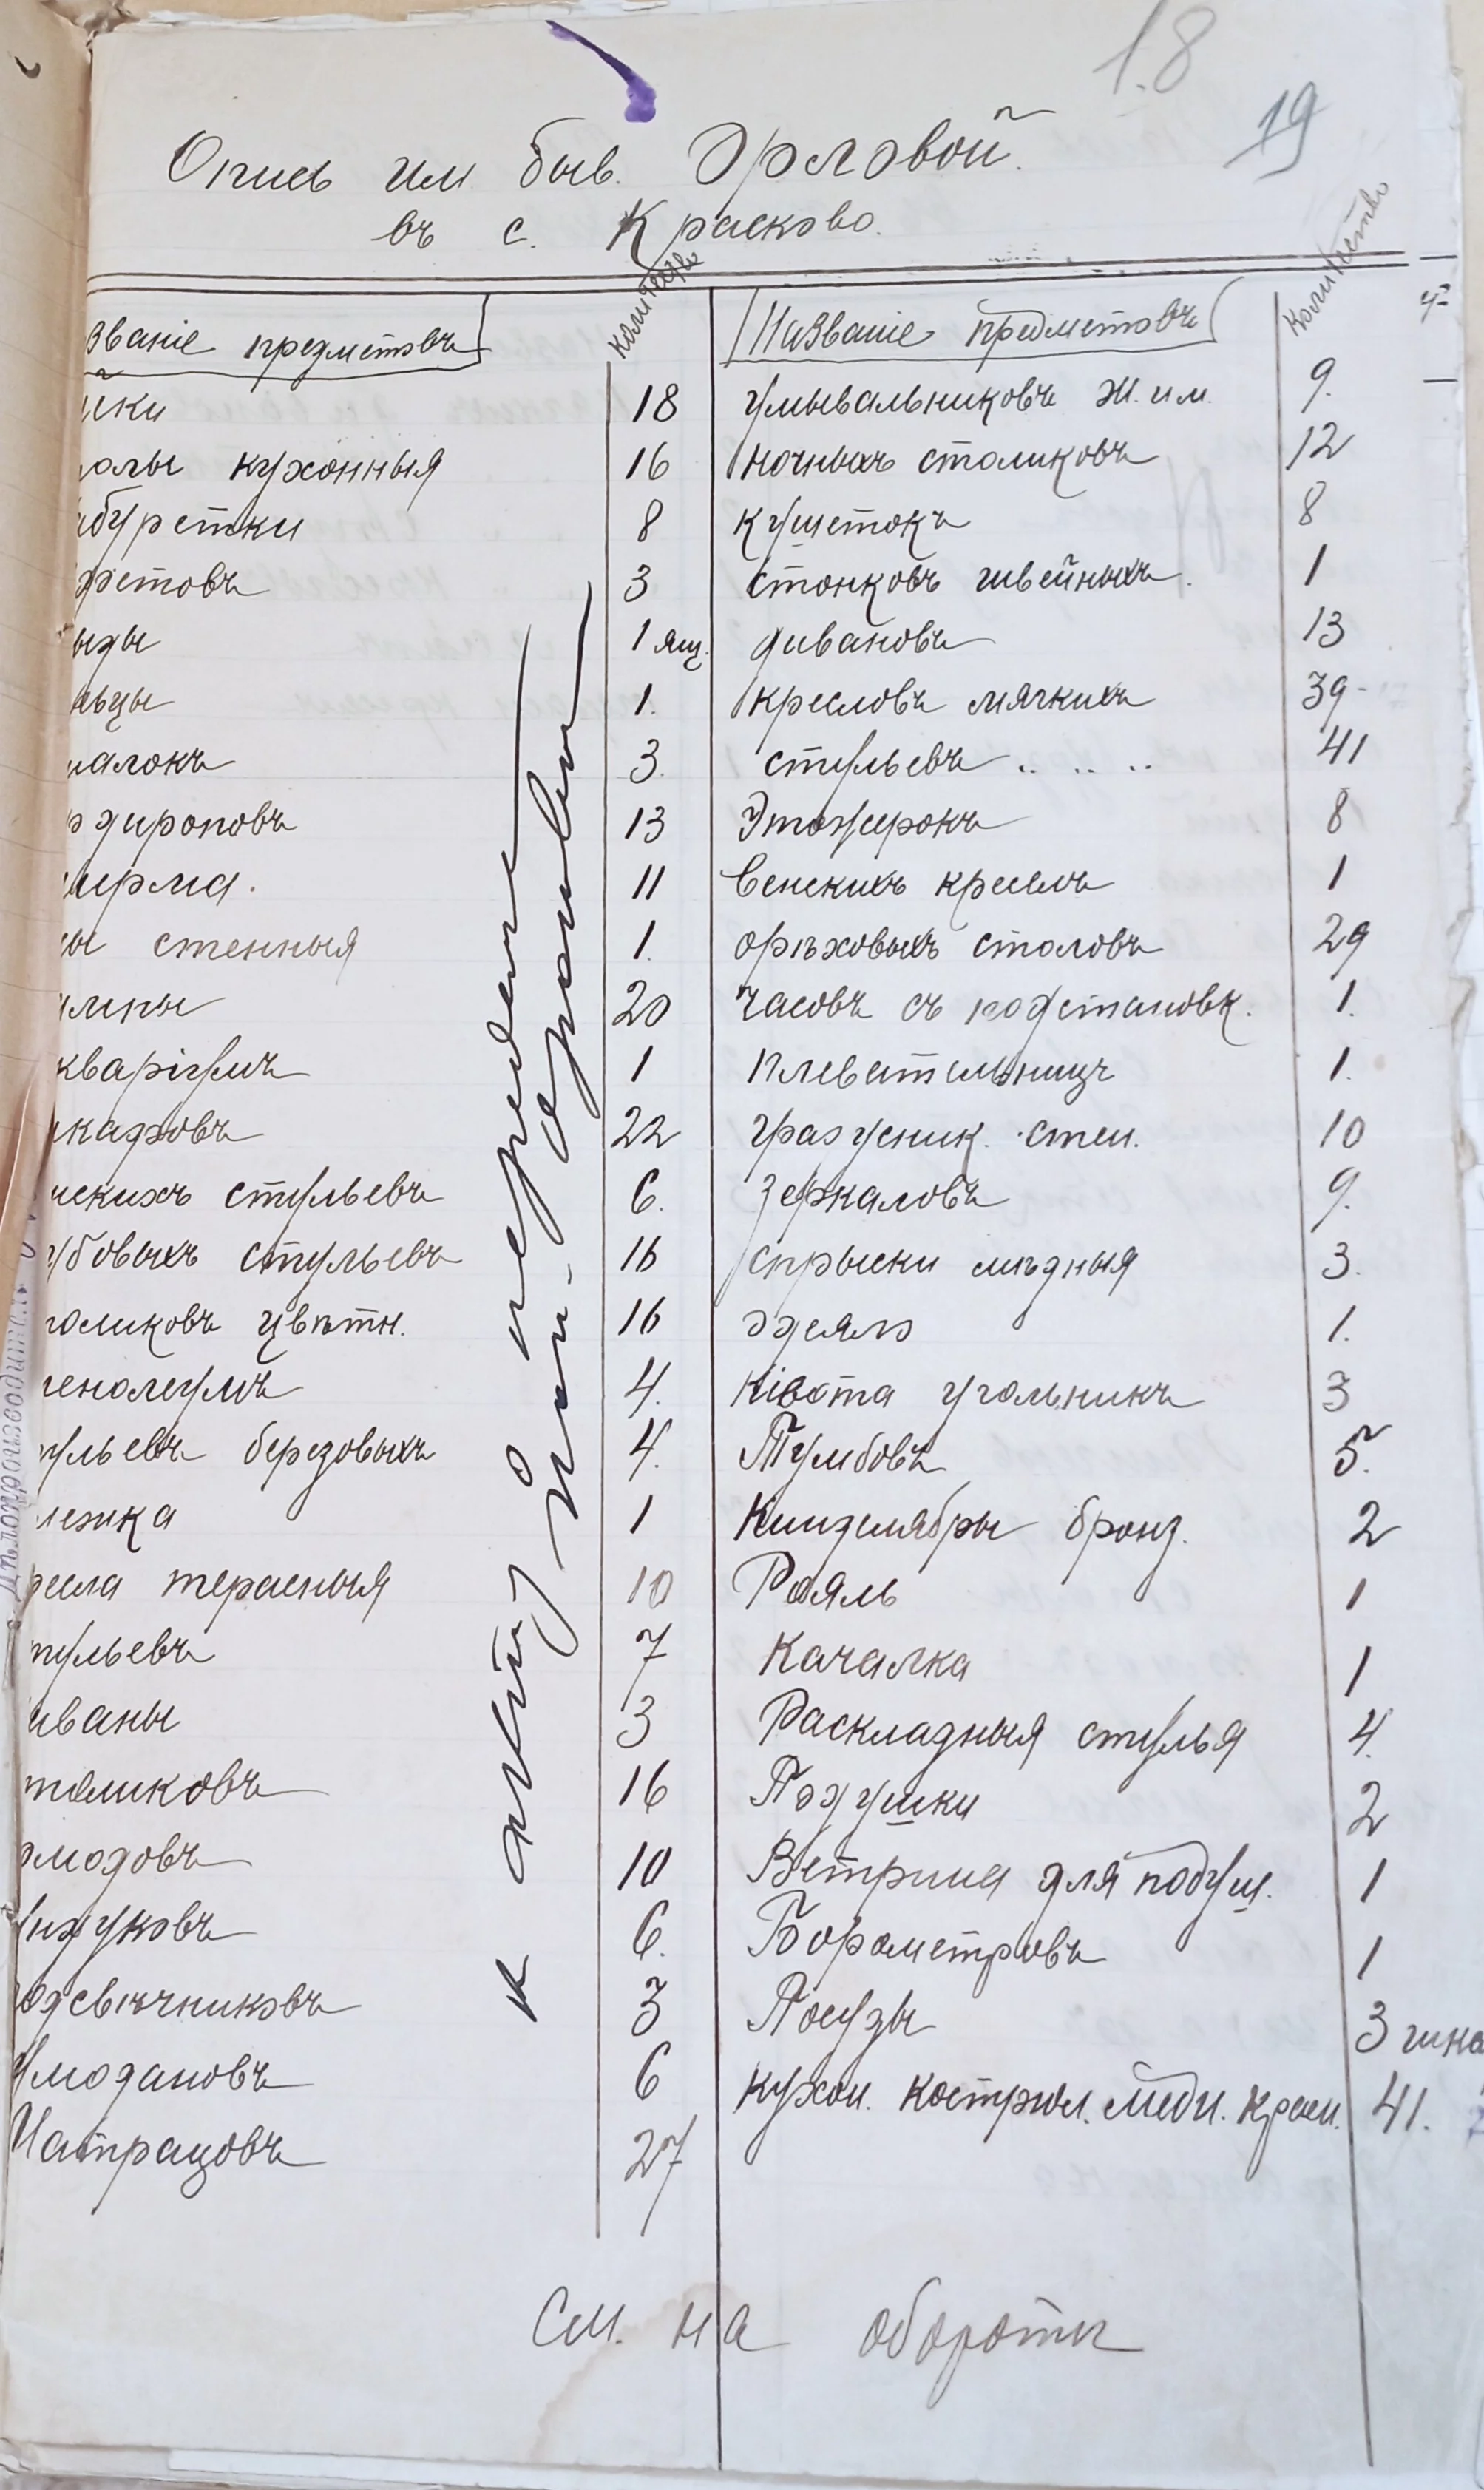 18
19
Опись им быв. Орловой.
въ с. Красково.
званіе предметовъ количество Названіе предметовъ количество
йки 18 умывальниковъ ж. им. 9.
олы кухонныя 16 ночныхъ столиковъ 12
абуретки 8 кушетокъ 8
3 станковъ швейныхъ. 1
1 ящ. дивановъ 13
альцы 1. кресловъ мягкихъ 39
шалокъ 3. стульевъ .. .. .. 41
рдироповъ 13 Этожерокъ 8
ширма. 11 венскихъ креслъ 1
сы стенныя 1. орѣховыхъ столовъ 29
ампы 20 часовъ съ подстановк. 1.
кваріумъ 1 плевательницъ 1.
шкафовъ 22 градусник. стен. 10
нскихъ стульевъ 6. зеркаловъ 9.
убовыхъ стульевъ 16 спрыски мѣдныя 3.
толиковъ цвѣтн. 16 одеяло 1.
ленолеумъ 4. кіота угольникъ 3
тульевъ березовыхъ 4. Тумбовъ 5.
лежка 1 Кандемябры бронз. 2
ресла терасныя 10 Рояль 1
тульевъ 7 Качалка 1
иваны 3 Раскладныя стулья 4.
толиковъ 16 Подушки 2
омодовъ 10 Ветрина для подуш. 1
ундуковъ 6. Барометровъ 1
одсвѣчниковъ 3 Посуды 3 шка
Чмодановъ 6 кухон. кострюл. меди. красн. 41.
Матрацовъ 27
См. на оборотѣ